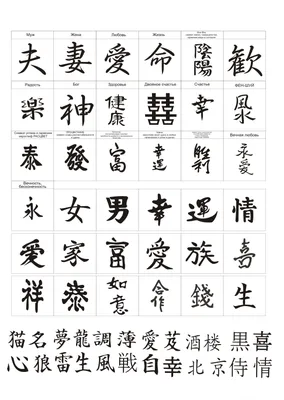 Муж Жена Любовь Жизнь
夫 妻 愛 命 陰陽 歡
Радость Бог Здоровье Двойное счастье Счастье ФЕН-ШУЙ
樂 神 健康 囍 幸 風水
Вечная любовь
泰 發 富 幸運 勝利 永愛
Вечность,
Бесконечность
永 女 男 幸 運 情
愛 家 富 愛 族 喜
祥 泰 如意 合作 錢 生
猫 名 夢 龍 調 薄 愛 艾 酒 楼 黒 喜
心 狼 雷 生 風 戦 自 幸 北 京 侍 情